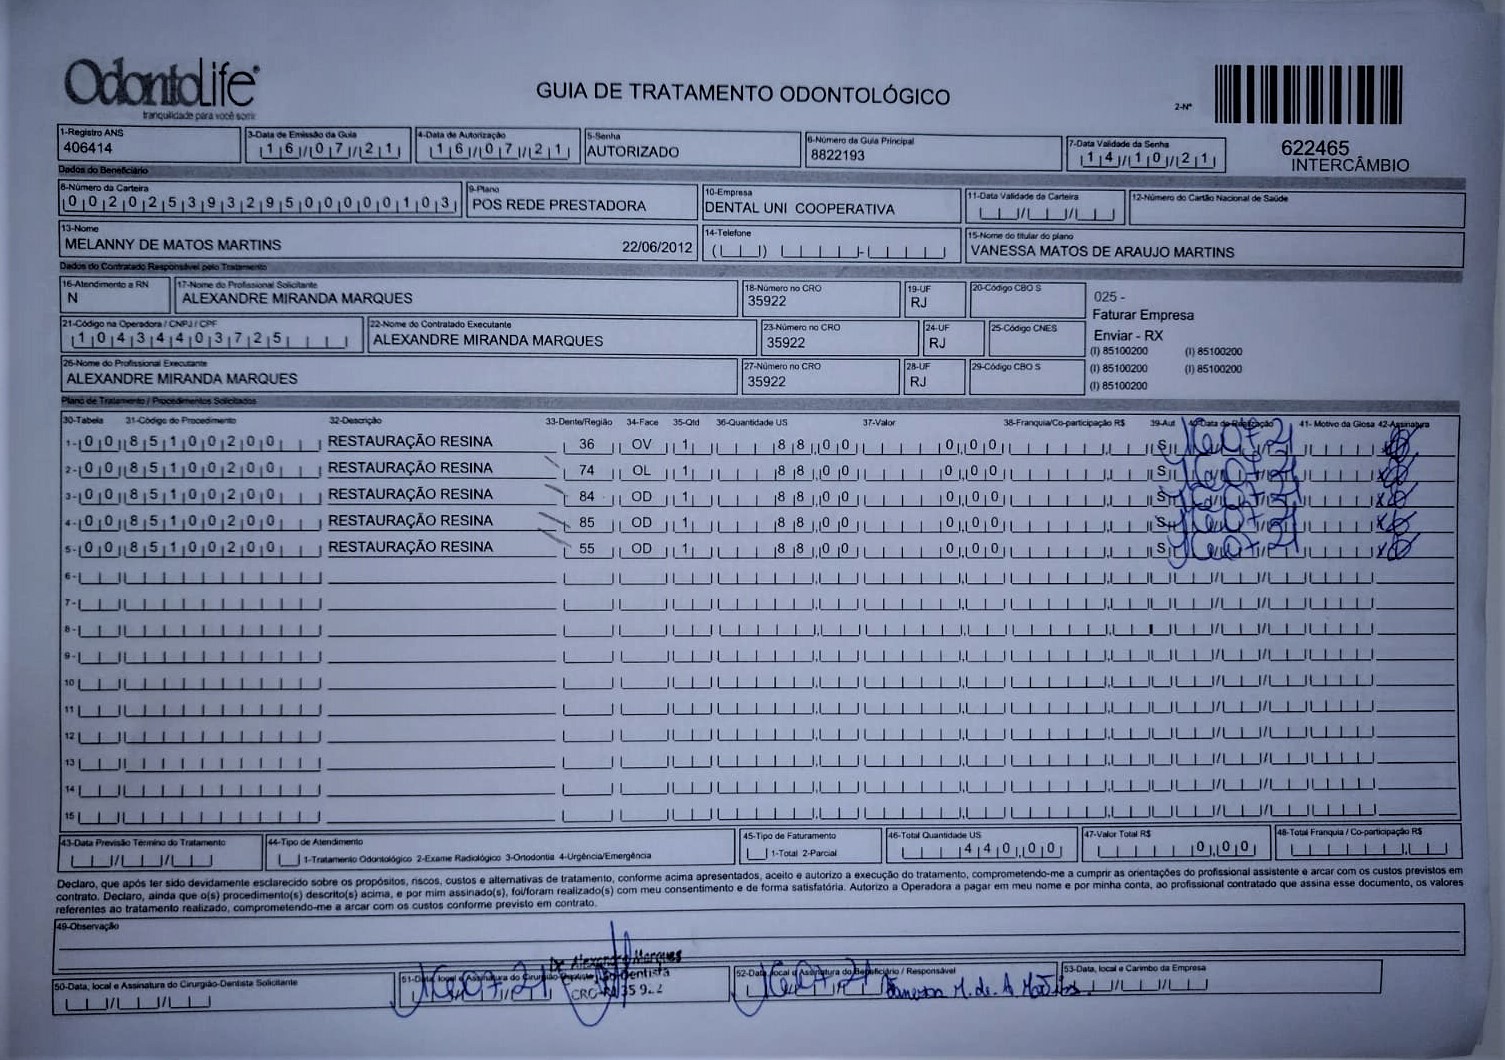 OdontoLife
tranquilidade para você sorrir
GUIA DE TRATAMENTO ODONTOLÓGICO
2-Nº
622465
INTERCÂMBIO
1-Registro ANS
406414
3-Data de Emissão da Guia
16/07/21
4-Data de Autorização
16/07/21
5-Senha
AUTORIZADO
6-Número da Guia Principal
8822193
7-Data Validade da Senha
14/10/21
Dados do Beneficiário
8-Número da Carteira
00202539329500000103
9-Plano
POS REDE PRESTADORA
10-Empresa
DENTAL UNI COOPERATIVA
11-Data Validade da Carteira
12-Número do Cartão Nacional de Saúde
13-Nome
MELANNY DE MATOS MARTINS 22/06/2012
14-Telefone
15-Nome do titular do plano
VANESSA MATOS DE ARAUJO MARTINS
Dados do Contratado Responsável pelo Tratamento
16-Atendimento a RN
N
17-Nome do Profissional Solicitante
ALEXANDRE MIRANDA MARQUES
18-Número no CRO
35922
19-UF
RJ
20-Código CBO S
025 -
Faturar Empresa
Enviar - RX
(I) 85100200 (I) 85100200
(I) 85100200 (I) 85100200
(I) 85100200
21-Código na Operadora / CNPJ / CPF
10434403725
22-Nome do Contratado Executante
ALEXANDRE MIRANDA MARQUES
23-Número no CRO
35922
24-UF
RJ
25-Código CNES
26-Nome do Profissional Executante
ALEXANDRE MIRANDA MARQUES
27-Número no CRO
35922
28-UF
RJ
29-Código CBO S
Plano de Tratamento / Procedimentos Solicitados
30-Tabela 31-Código do Procedimento 32-Descrição 33-Dente/Região 34-Face 35-Qtd 36-Quantidade US 37-Valor 38-Franquia/Co-participação R$ 39-Aut 40-Data de Realização 41- Motivo da Glosa 42-Assinatura
1- 00 85100200 RESTAURAÇÃO RESINA 36 OV 1 88,00 0,00 S 16 07 21
2- 00 85100200 RESTAURAÇÃO RESINA 74 OL 1 88,00 0,00 S 16 07 21
3- 00 85100200 RESTAURAÇÃO RESINA 84 OD 1 88,00 0,00 S 16 07 21
4- 00 85100200 RESTAURAÇÃO RESINA 85 OD 1 88,00 0,00 S 16 07 21
5- 00 85100200 RESTAURAÇÃO RESINA 55 OD 1 88,00 0,00 S 16 07 21
6-
7-
8-
9-
10
11
12
13
14
15
43-Data Previsão Término do Tratamento
44-Tipo de Atendimento
1-Tratamento Odontológico 2-Exame Radiológico 3-Ortodontia 4-Urgência/Emergência
45-Tipo de Faturamento
1-Total 2-Parcial
46-Total Quantidade US
440,00
47-Valor Total R$
0,00
48-Total Franquia / Co-participação R$
Declaro, que após ter sido devidamente esclarecido sobre os propósitos, riscos, custos e alternativas de tratamento, conforme acima apresentados, aceito e autorizo a execução do tratamento, comprometendo-me a cumprir as orientações do profissional assistente e arcar com os custos previstos em
contrato. Declaro, ainda que o(s) procedimento(s) descrito(s) acima, e por mim assinado(s), foi/foram realizado(s) com meu consentimento e de forma satisfatória. Autorizo a Operadora a pagar em meu nome e por minha conta, ao profissional contratado que assina esse documento, os valores
referentes ao tratamento realizado, comprometendo-me a arcar com os custos conforme previsto em contrato.
49-Observação
50-Data, local e Assinatura do Cirurgião-Dentista Solicitante
51-Data, local e Assinatura do Cirurgião-Dentista
16 07 21
Dr. Alexandre Marques
52-Data, local e Assinatura do Beneficiário / Responsável
16 07 21
Vanessa M. de A Martins
53-Data, local e Carimbo da Empresa